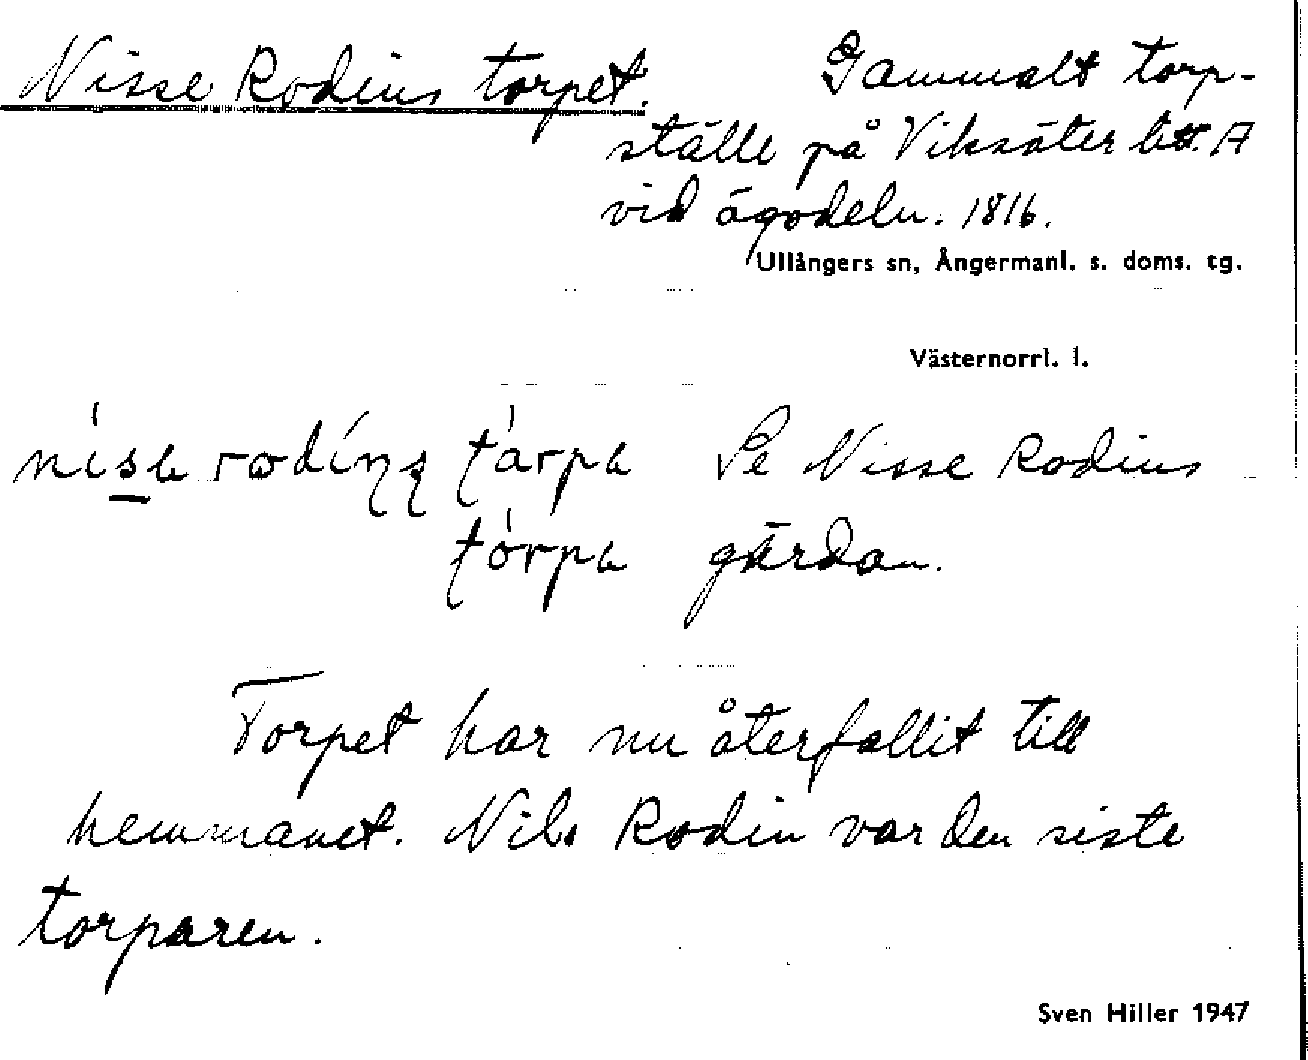 Nisse Rodins torpet.
Gammalt torp-
ställe på Viksäter litt. A
vid ägodeln. 1816.
Ullångers sn, Ångermanl. s. doms. tg.
Västernorrl. l.
Se Nisse Rodins
gärdan.
Torpet har nu återfallit till
hemmanet. Nils Rodin var den siste
torparen.
Sven Hiller 1947